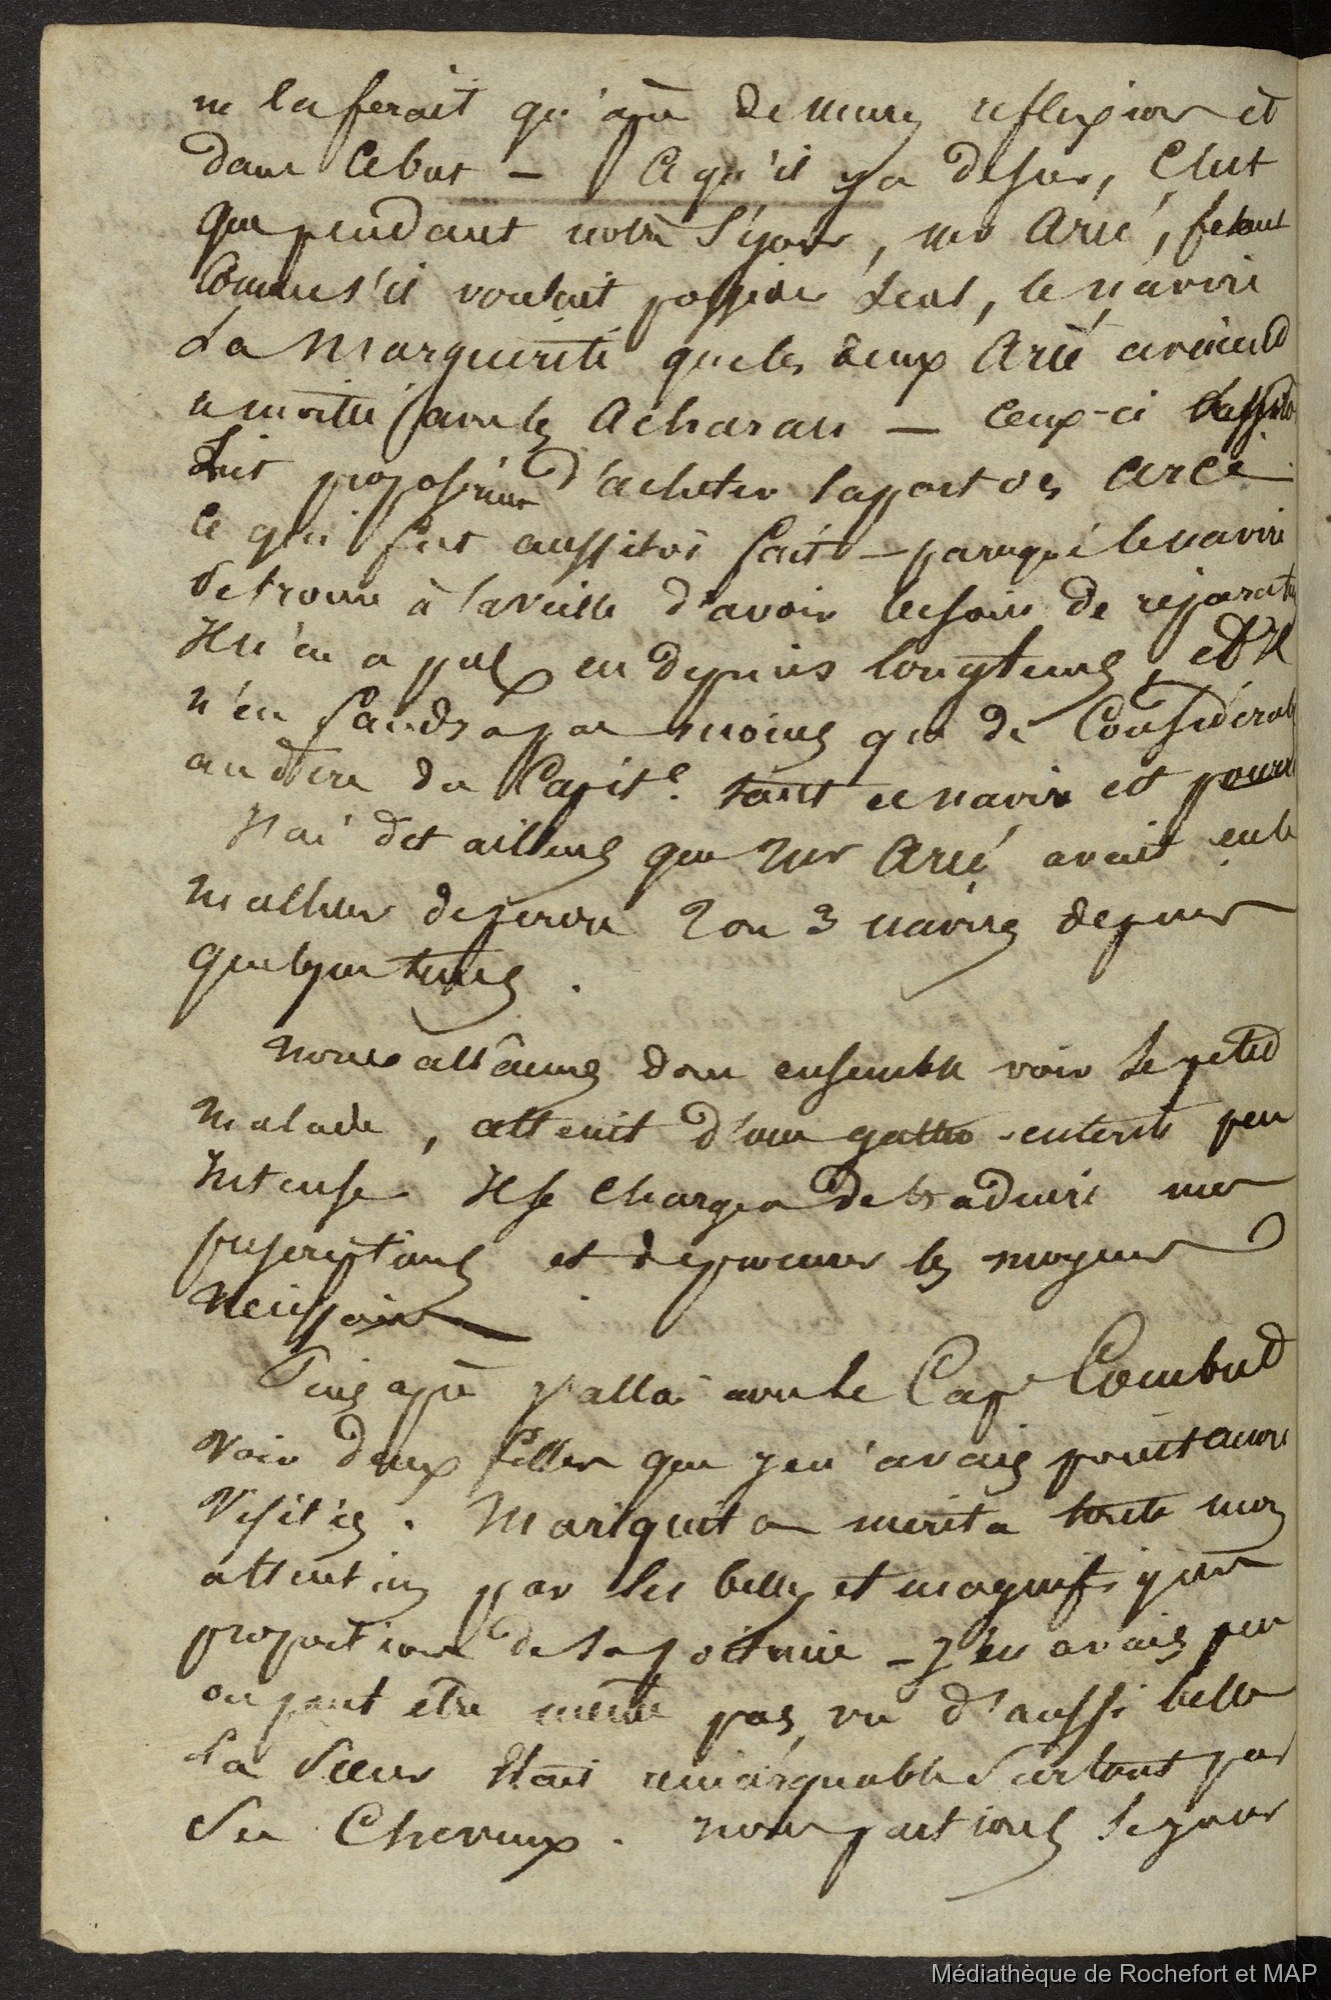 ne la ferait qu'après de mures reflexions et
dans ce but — Ce qu'il y a de sur, c'est
que pendant notre séjour, mr Arié,
comme s'il voulait posseder seul, le navire
La Marguerite que les deux Arié avaient
a moitié avec les Acharan — ceux-ci
proposèrent d'acheter la part des Arié
ce qui fut aussitôt fait — parceque le navire
se trouve à la veille d'avoir besoin de réparat
Il n'en a pas eu depuis longtems, et il
n'en faudra pas moins que de Considérabl
au dire du Capit.e tant ce navire est pourri
J'ai dit ailleurs que Mr Arié avait eu le
malheur de perdre 2 ou 3 navires depuis
quelques tems.
Nous allâmes donc ensemble voir le petit
malade, atteint d'une gastro-enterite peu
intense. Il se chargea de traduire mes
prescriptions et de procurer les moyens
necessaires
Puis après j'allai avec le Cap.e
voir deux filles que je n'avais point encore
visitées. Mariquita merita toute mon
attention par les belles et magnifiques
proportions de sa poitrine — J'en avais peu
ou peut être même pas vu d'aussi belle
La Sœur était remarquable surtout par
ses Cheveux. Nous partions le jour